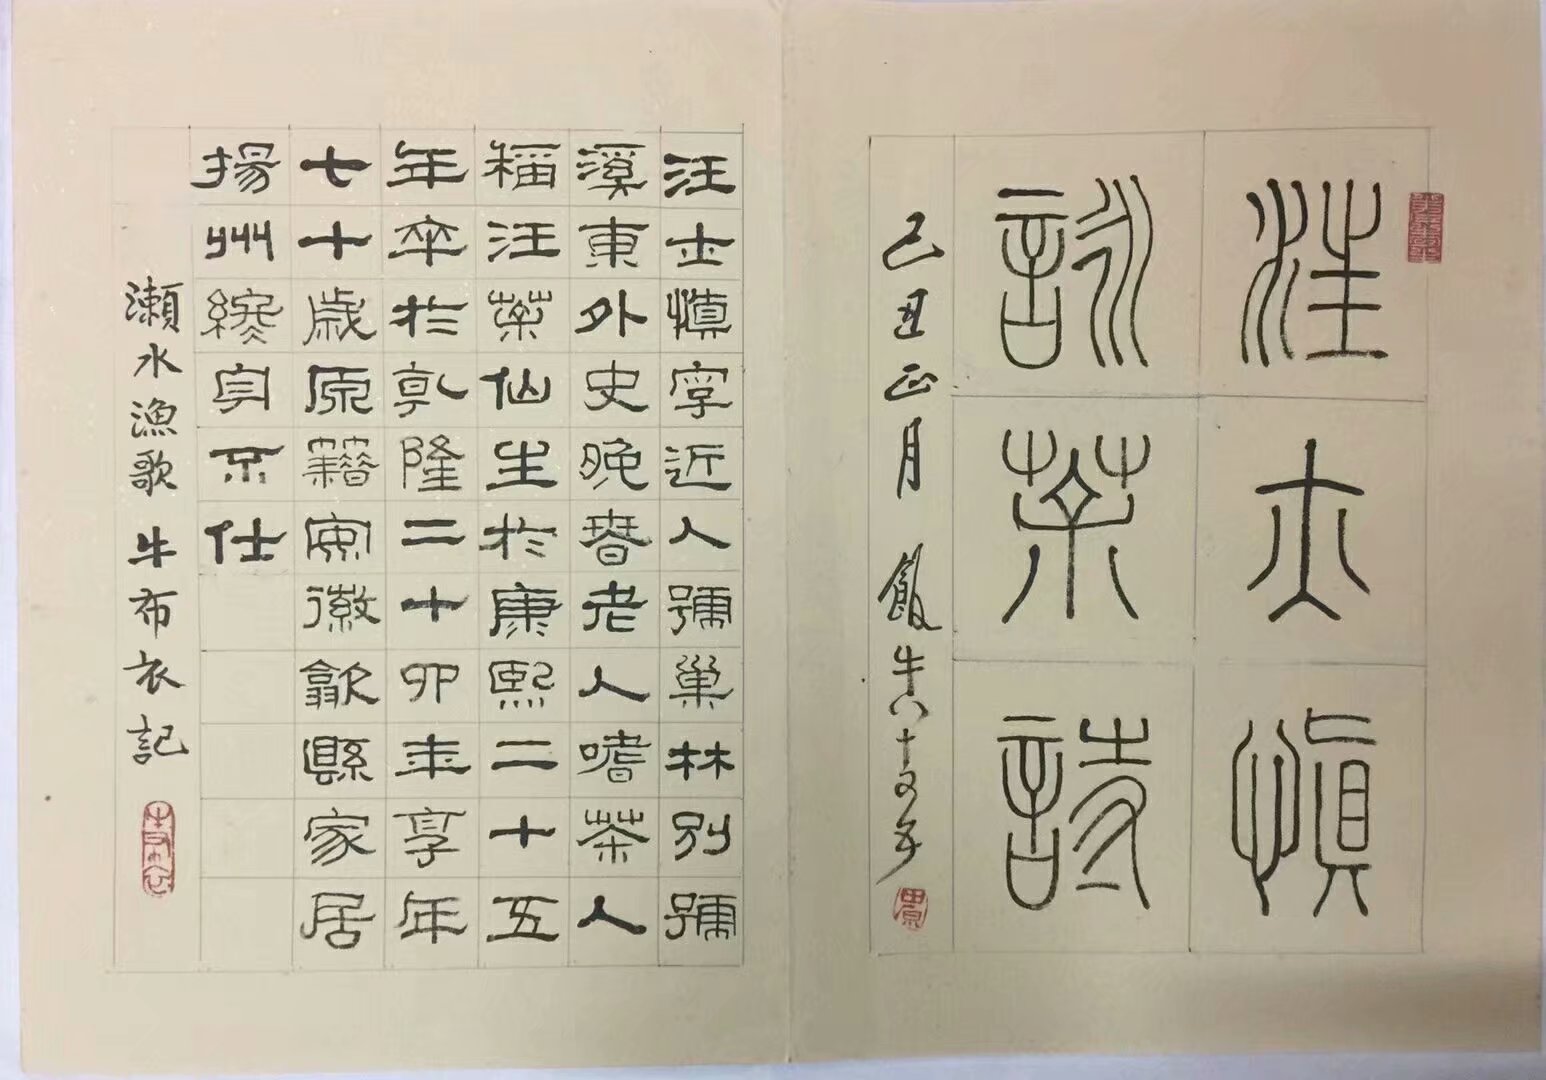 汪士慎
詠茶詩
己丑正月飯牛八十又五
汪士慎字近人號巢林別號
溪東外史晚春老人嗜茶人
稱汪茶仙生於康熙二十五
年卒於乾隆二十四年享年
七十歲原籍安徽歙縣家居
揚州終身不仕
瀨水漁歌牛布衣記